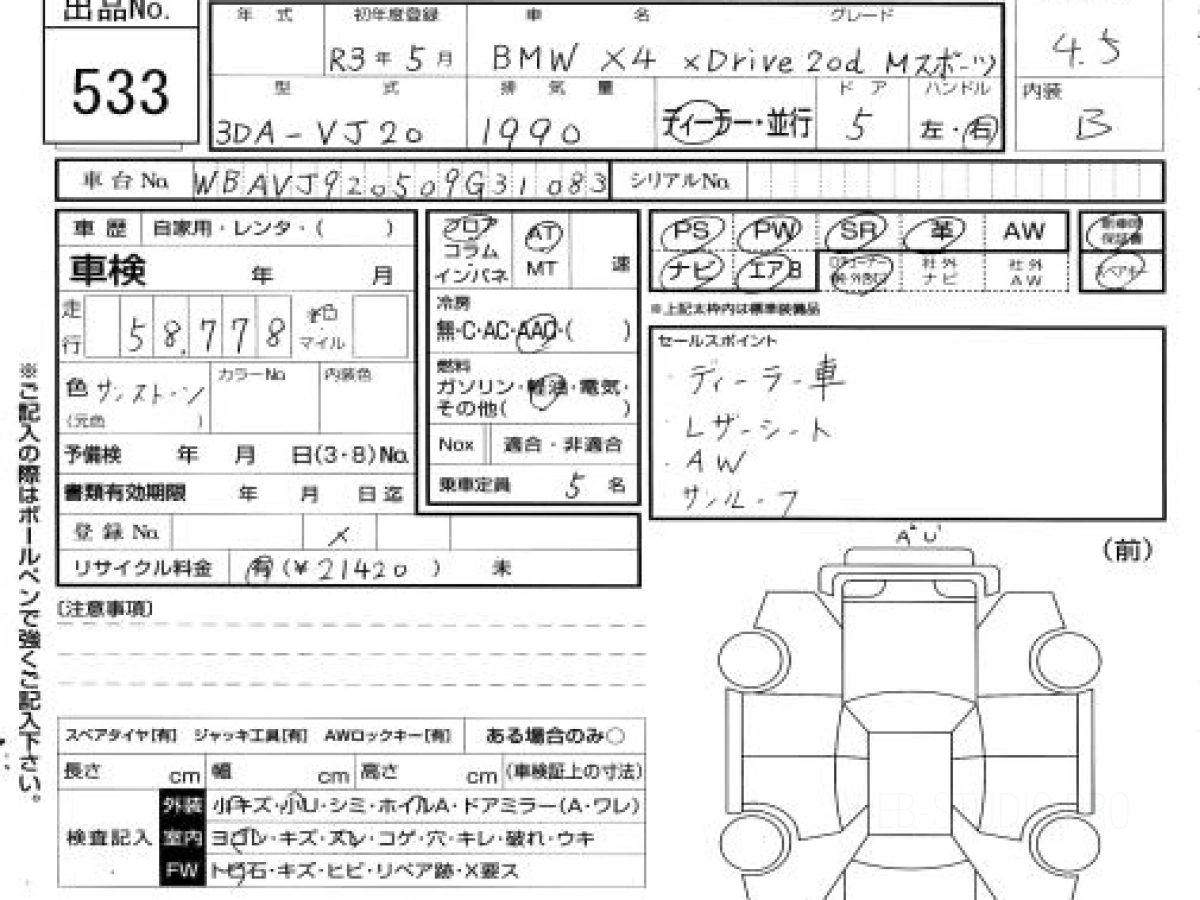 出品No.
533
年式 初年度登録 車名 グレード
R3年5月 BMW X4 xDrive20d Mスポーツ
4.5
型式 排気量 ドア ハンドル
3DA-VJ20 1990 ディーラー・並行 5 左・右
内装
B
車台No. WBAVJ920509G31083 シリアルNo.
車歴 自家用・レンタ・( )
車検 年 月
走行 58,778 マイル
色 サンストーン カラーNo. 内装色
(元色 )
予備検 年 月 日(3・8)No.
書類有効期限 年 月 日迄
登録No. ×
リサイクル料金 有(¥21420) 未
フロア
コラム
インパネ
AT
MT
速
冷房
無・C・AC・AAC・( )
燃料
ガソリン・軽油・電気・
その他( )
Nox 適合・非適合
乗車定員 5名
PS PW SR 革 AW
ナビ エアB 社外ナビ 社外AW
スペアキー
※上記太枠内は標準装備品
セールスポイント
・ディーラー車
・レザーシート
・AW
・サンルーフ
(前)
※ご記入の際はボールペンで強くご記入下さい。
〔注意事項〕
スペアタイヤ[有] ジャッキ工具[有] AWロックキー[有] ある場合のみ○
長さ cm 幅 cm 高さ cm (車検証上の寸法)
検査記入
外装 小キズ・小U・シミ・ホイルA・ドアミラー(A・ワレ)
室内 ヨゴレ・キズ・スレ・コゲ・穴・キレ・破れ・ウキ
FW トビ石・キズ・ヒビ・リペア跡・X要ス